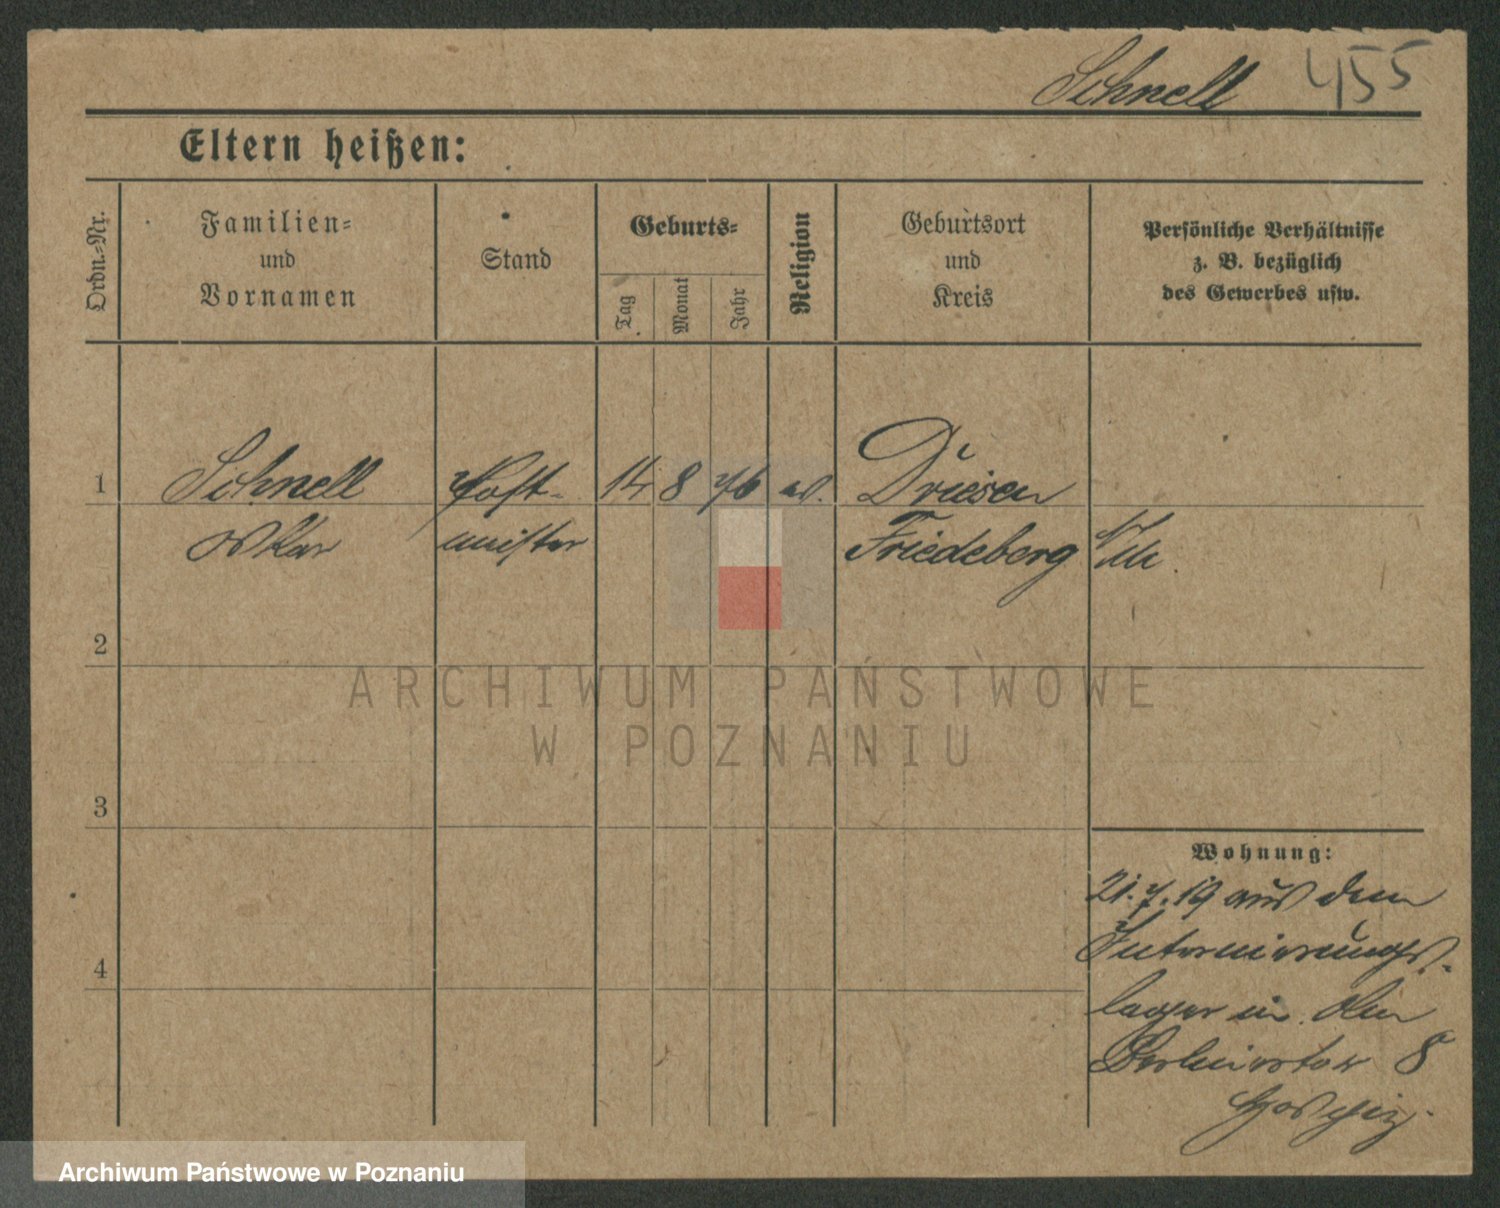 Schnell 455
Eltern heißen:
Ordn.-Nr.
Familien-
und
Vornamen
Stand
Geburts-
Tag
Monat
Jahr
Religion
Geburtsort
und
Kreis
Persönliche Verhältnisse
z. B. bezüglich
des Gewerbes usw.
1 Schnell Post- 14 8 76 ev. Driesen
Oskar meister Friedeberg N/M
2
ARCHIWUM PAŃSTWOWE
W POZNANIU
3
Wohnung:
21.7.19 aus dem
Internierungs-
4
lager in
Berlinertor 8
Hospiz.
Archiwum Państwowe w Poznaniu